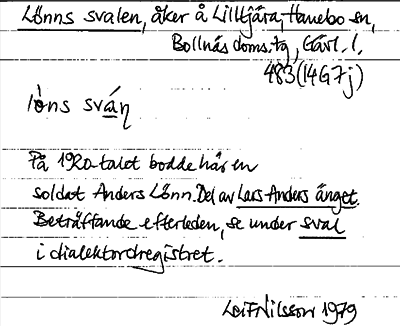 Lönns svalen, åker å Lilltjära, Hanebo sn,
Bollnäs doms.tg, Gävl. l.
483 (14G7j)
lò̀ns sváṇ
På 1920-talet bodde här en
soldat Anders Lönn. Del av Lars-Anders änget.
Beträffande efterleden, se under sval
i dialektordregistret.
Leif Nilsson 1979